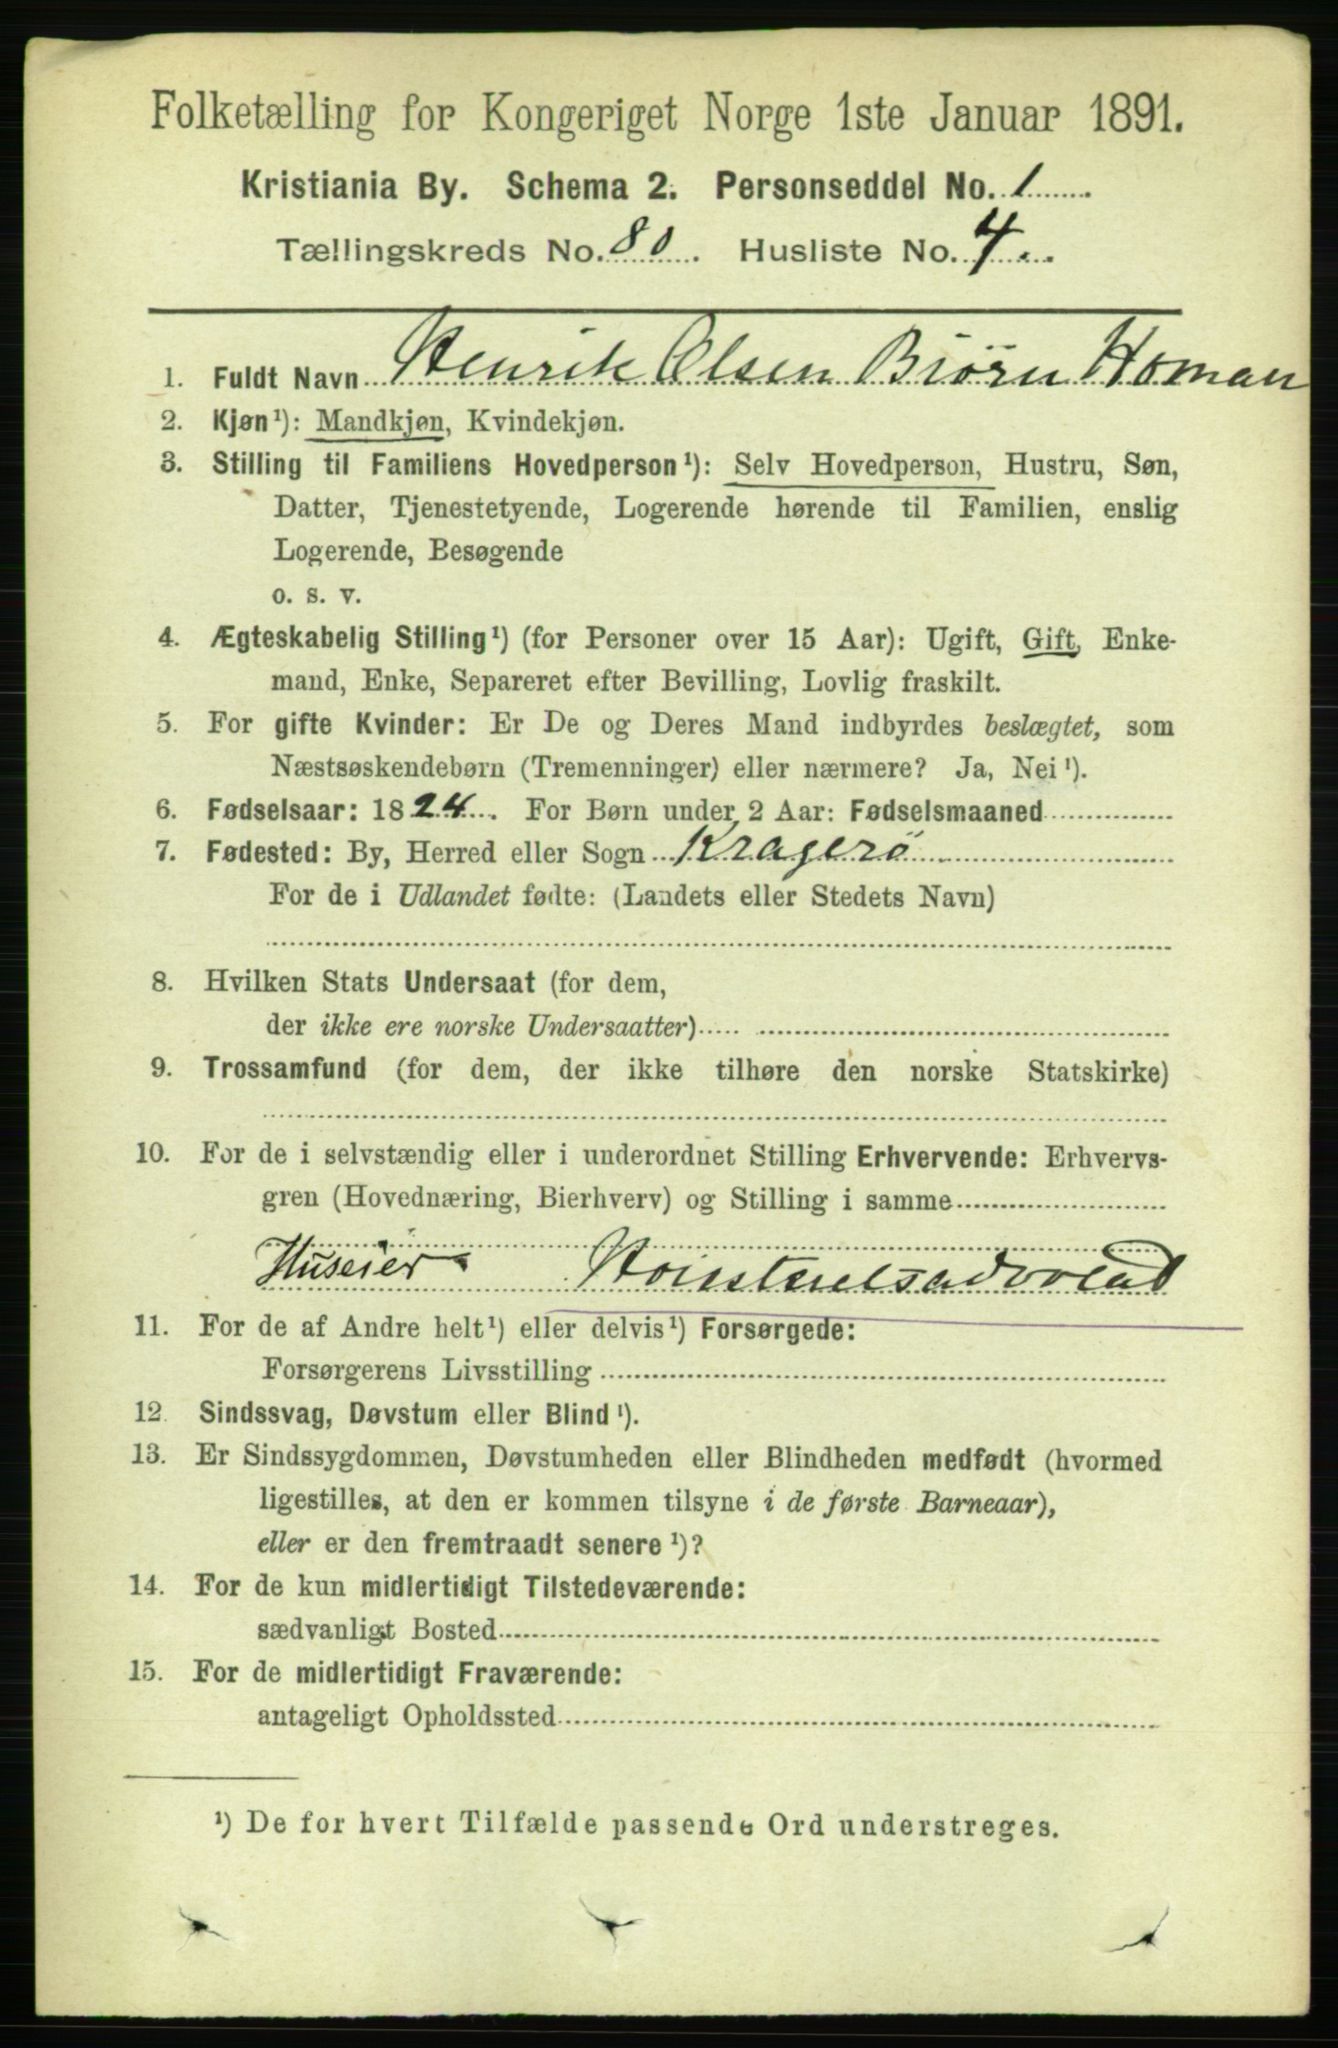 Folketælling for Kongeriget Norge 1ste Januar 1891.
Kristiania By. Schema 2. Personseddel No. 1
Tællingskreds No. 80. Husliste No. 4.
1. Fuldt Navn Henrik Olsen Biørn Homan
2. Kjøn¹): Mandkjøn, Kvindekjøn.
3. Stilling til Familiens Hovedperson¹): Selv Hovedperson, Hustru, Søn,
Datter, Tjenestetyende, Logerende hørende til Familien, enslig
Logerende, Besøgende
o. s. v.
4. Ægteskabelig Stilling¹) (for Personer over 15 Aar): Ugift, Gift, Enke-
mand, Enke, Separeret efter Bevilling, Lovlig fraskilt.
5. For gifte Kvinder: Er De og Deres Mand indbyrdes beslægtet, som
Næstsøskendebørn (Tremenninger) eller nærmere? Ja, Nei¹).
6. Fødselsaar: 1824. For Børn under 2 Aar: Fødselsmaaned
7. Fødested: By, Herred eller Sogn Kragerö
For de i Udlandet fødte: (Landets eller Stedets Navn)
8. Hvilken Stats Undersaat (for dem,
der ikke ere norske Undersaatter)
9. Trossamfund (for dem, der ikke tilhøre den norske Statskirke)
10. For de i selvstændig eller i underordnet Stilling Erhvervende: Erhvervs-
gren (Hovednæring, Bierhverv) og Stilling i samme
Huseier. Hoiesteretsadvokat
11. For de af Andre helt¹) eller delvis¹) Forsørgede:
Forsørgerens Livsstilling
12. Sindssvag, Døvstum eller Blind¹).
13. Er Sindssygdommen, Døvstumheden eller Blindheden medfødt (hvormed
ligestilles, at den er kommen tilsyne i de første Barneaar),
eller er den fremtraadt senere¹)?
14. For de kun midlertidigt Tilstedeværende:
sædvanligt Bosted
15. For de midlertidigt Fraværende:
antageligt Opholdssted
¹) De for hvert Tilfælde passende Ord understreges.